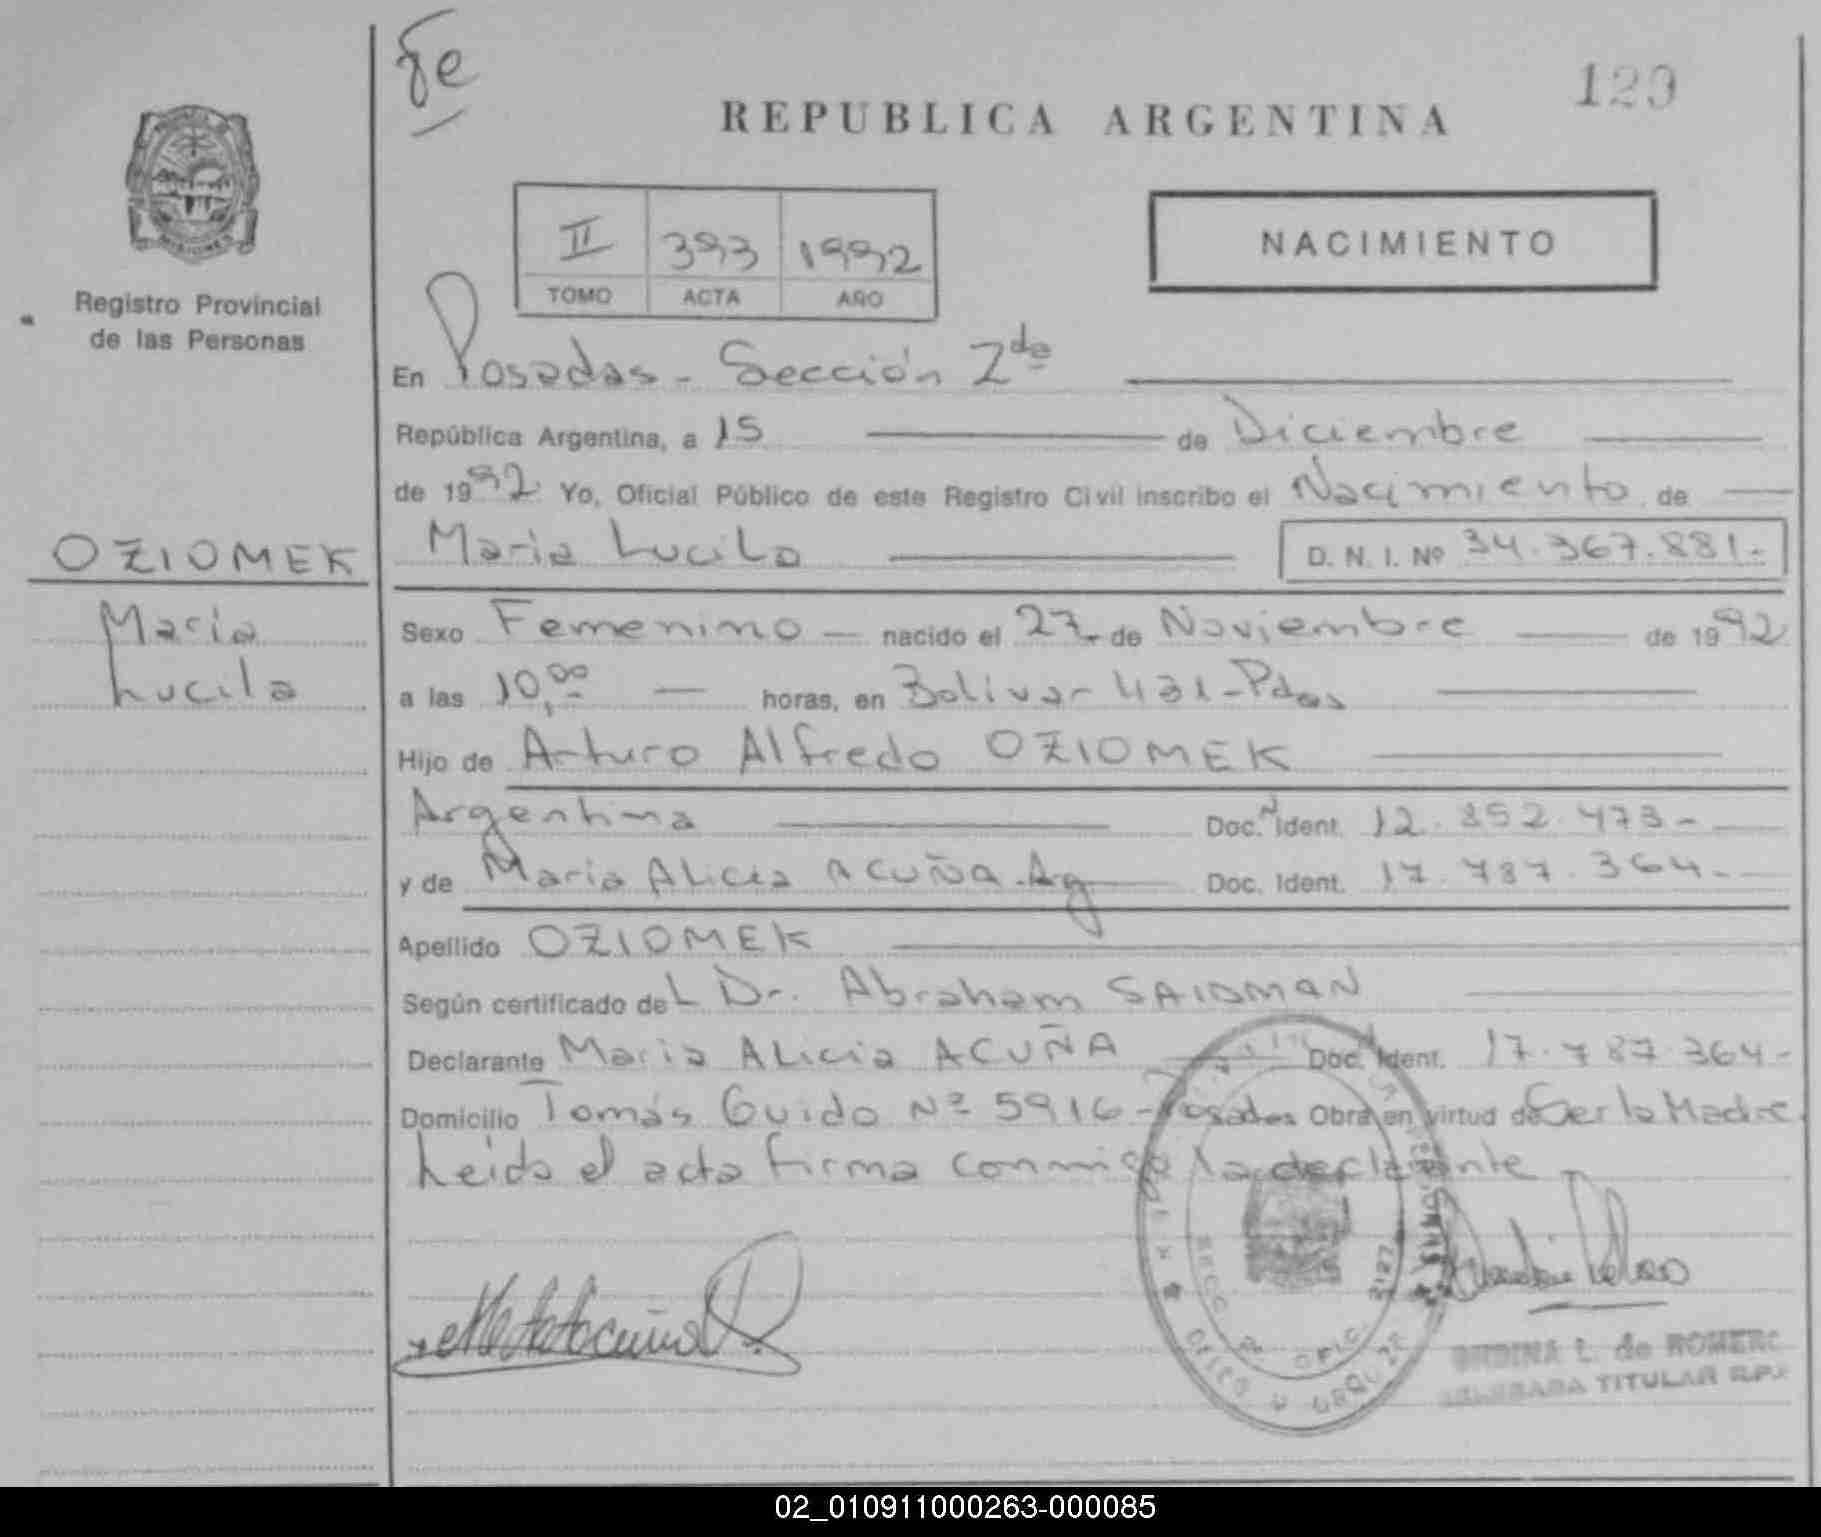 fe
129
REPUBLICA ARGENTINA
MISIONES
Registro Provincial
de las Personas
II 393 1992
TOMO ACTA AÑO
NACIMIENTO
En Posadas - Sección 2da
República Argentina, a 15 de Diciembre
de 1992 Yo, Oficial Público de este Registro Civil inscribo el Nacimiento de
OZIOMEK
Maria Lucila D. N. I. Nº 34.367.881.-
Maria
Lucila
Sexo Femenino — nacido el 27 de Noviembre — de 1992
a las 10,00 — horas, en Bolivar 431 - Pdas
Hijo de Arturo Alfredo OZIOMEK
Argentina Doc. Ident. 12.852.473-
y de Maria Alicia ACUÑA - Arg Doc. Ident. 17.787.364-
Apellido OZIOMEK
Según certificado del Dr. Abraham SAIDMAN
Declarante Maria Alicia ACUÑA Doc. Ident. 17.787.364-
Domicilio Tomás Guido Nº 5916 - Posadas Obra en virtud de Ser la Madre.
Leida el acta firma conmigo la declarante
SECC. 2a OFIC. 3127
URQUIZA
L. de ROMERO
TITULAR R.P.
02_010911000263-000085